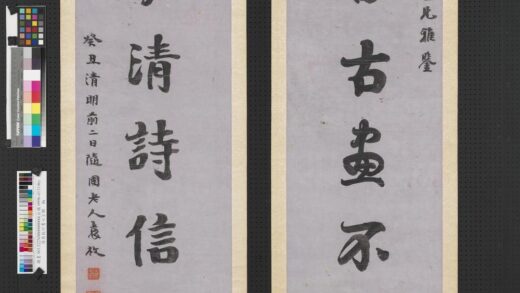 兄雅鑒
古畫不
清詩信
癸丑清明前二日隨園老人袁枚